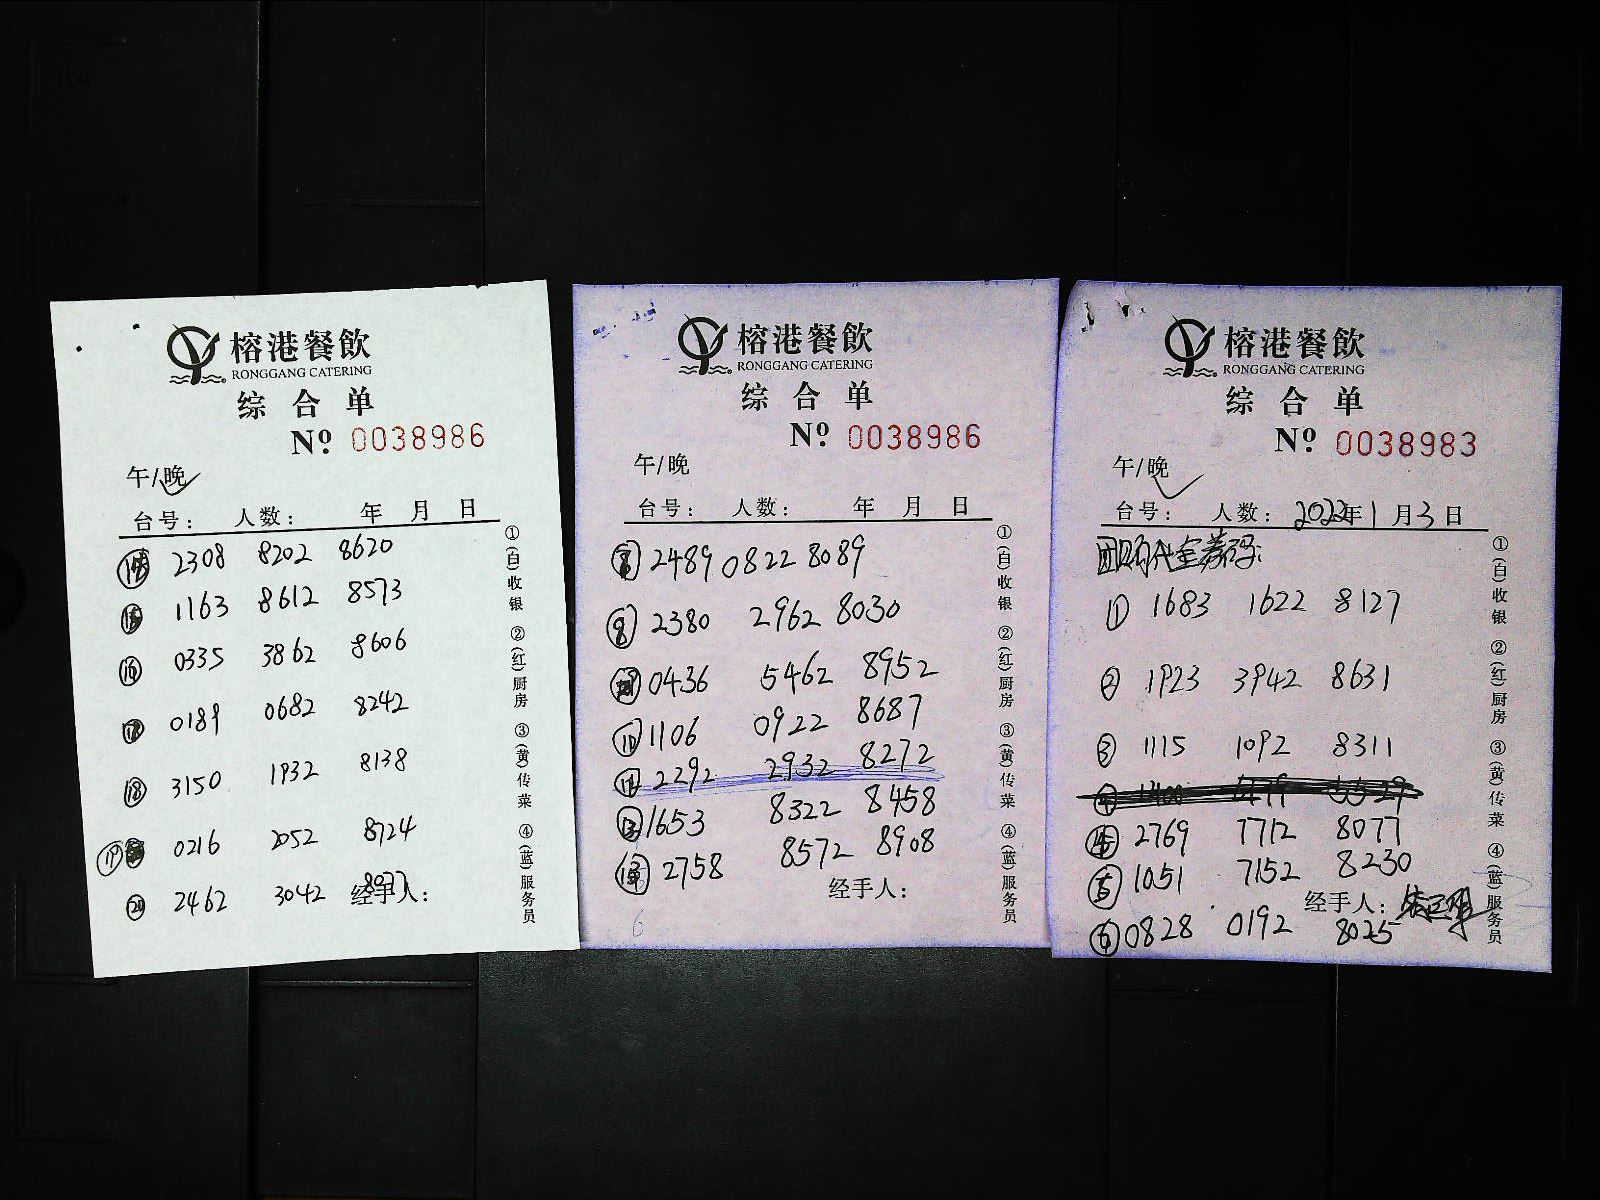 榕港餐飲
RONGGANG CATERING
综合单
Nº 0038986
午/晚
台号： 人数： 年 月 日
2308 8202 8620
⑮ 1163 8612 8573
⑯ 0335 3862 8606
⑰ 0189 0682 8242
⑱ 3150 1932 8138
⑲ 0216 2052 8724
⑳ 2462 3042
经手人：
①(白)收银 ②(红)厨房 ③(黄)传菜 ④(蓝)服务员
榕港餐飲
RONGGANG CATERING
综合单
Nº 0038986
午/晚
台号： 人数： 年 月 日
2489 0822 8089
2380 2962 8030
0436 5462 8952
1106 0922 8687
2292 2932 8272
1653 8322 8458
2758 8572 8908
经手人：
6
①(白)收银 ②(红)厨房 ③(黄)传菜 ④(蓝)服务员
榕港餐飲
RONGGANG CATERING
综合单
Nº 0038983
午/晚
台号： 人数： 2022年1月3日
① 1683 1622 8127
② 1923 3942 8631
③ 1115 1092 8311
2769 7712 8077
⑤ 1051 7152 8230
⑥ 0828 0192 8025
经手人：
①(白)收银 ②(红)厨房 ③(黄)传菜 ④(蓝)服务员